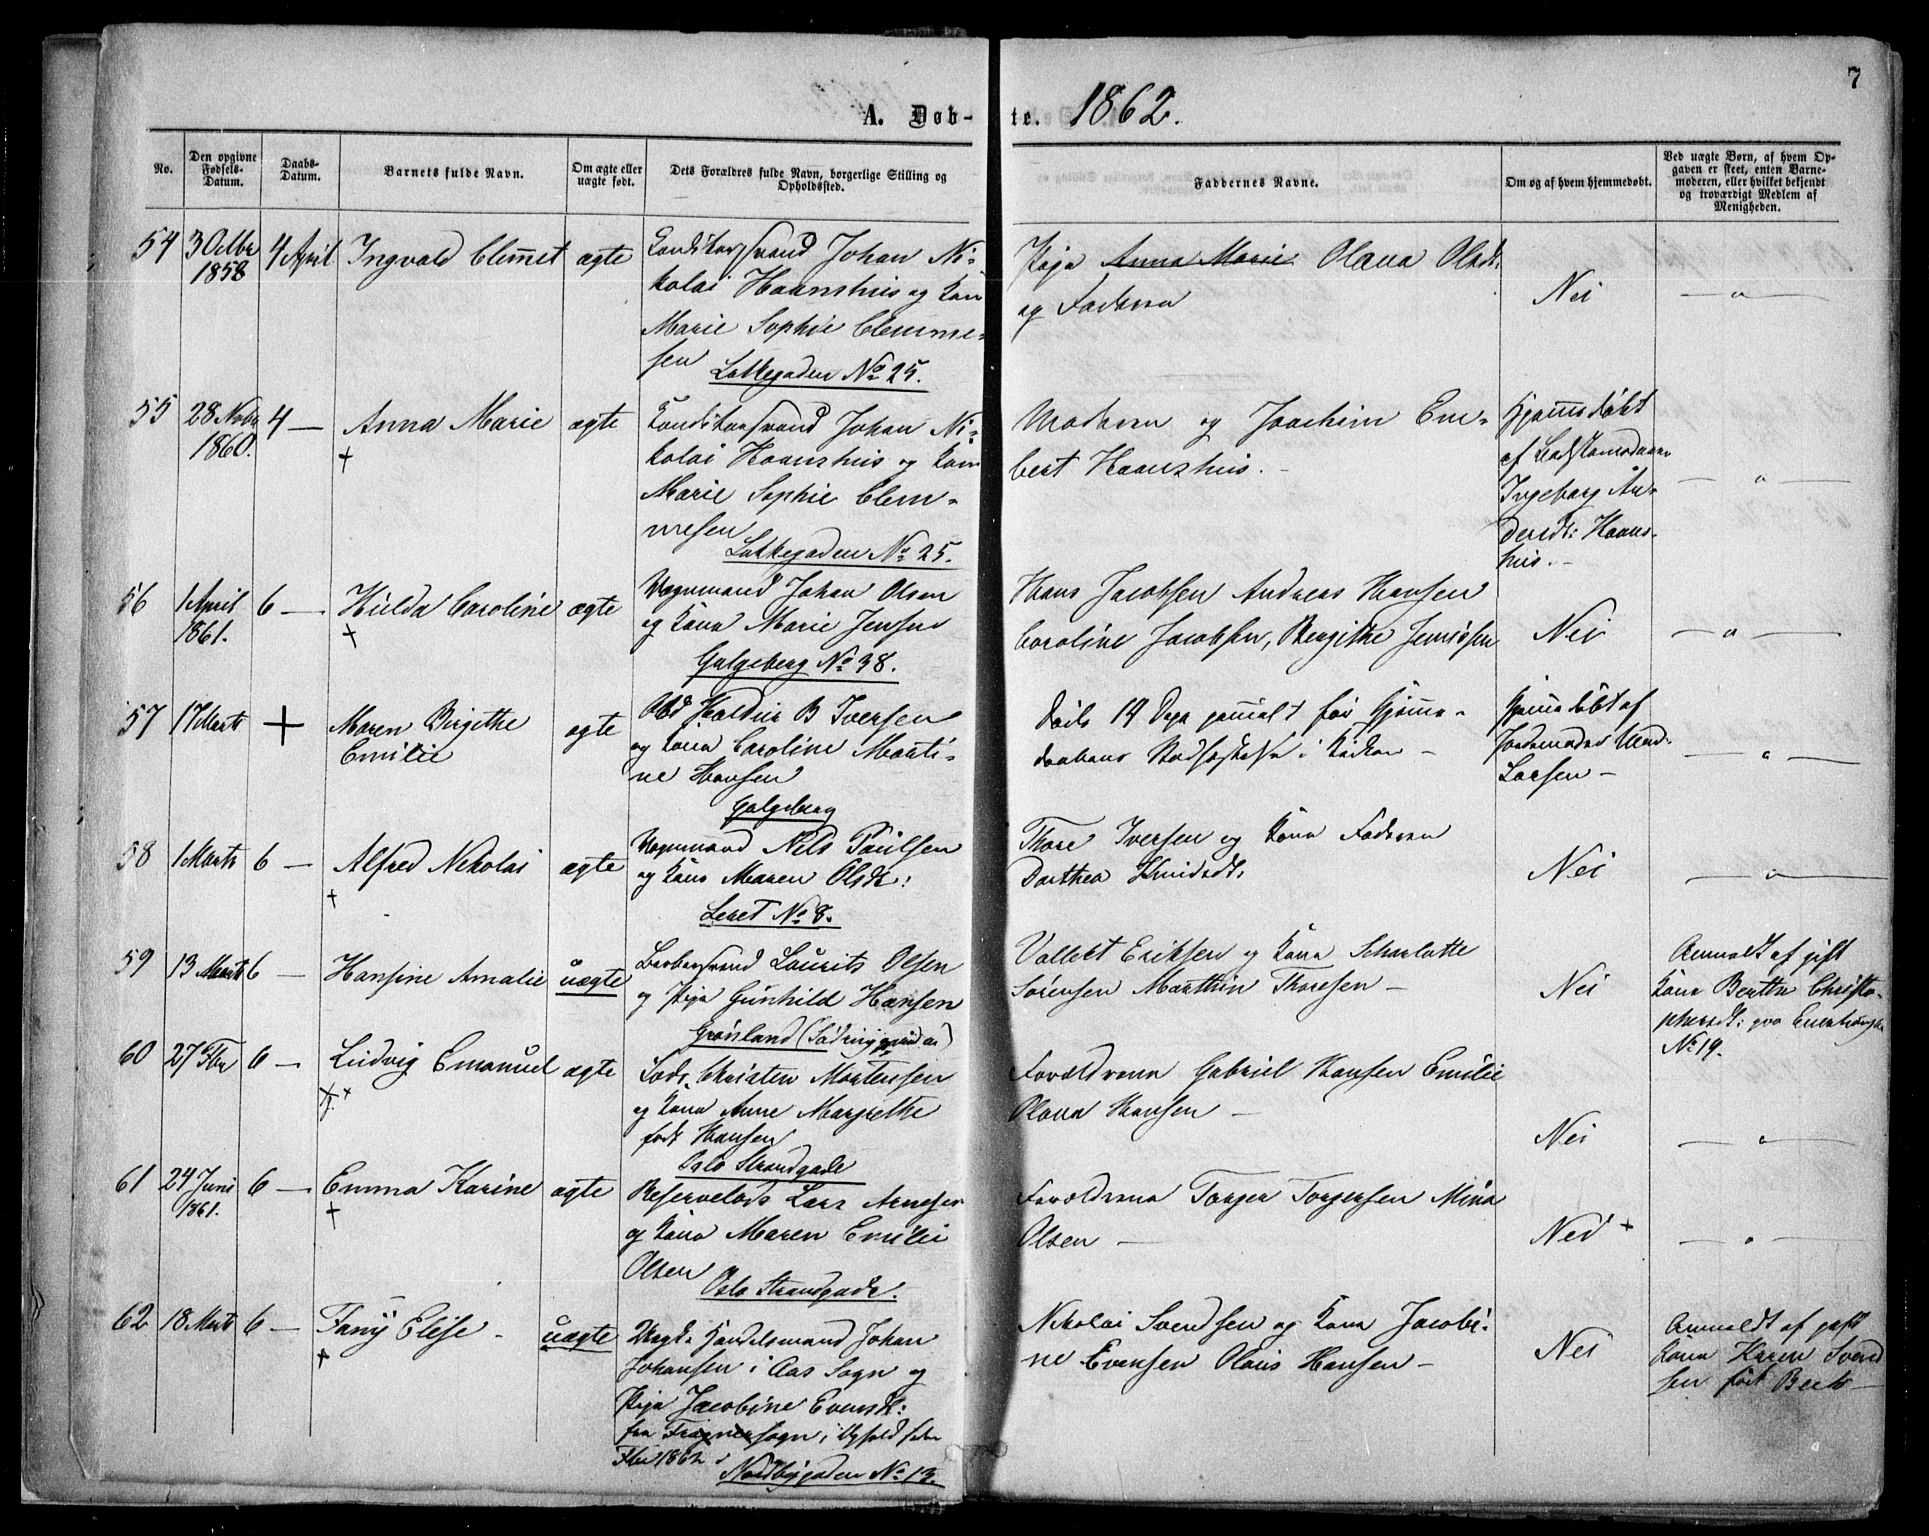 7
A. Døb-te. 1862.
No.
Den opgivne Fødsels-Datum.
Daabs-Datum.
Barnets fulde Navn.
Om ægte eller uægte født.
Dets Forældres fulde Navn, borgerlige Stilling og Opholdssted.
Faddernes Navne.
Om og af hvem hjemmedøbt.
Ved uægte Børn, af hvem Opgaven er skeet, enten Barnemoderen, eller hvilket bekjendt og troværdigt Medlem af Menigheden.
54 3 Octbr 1858 4 April Ingvald Clemet ægte
Konditorsvend Johan Ni-
kolai Haanshus og Kone
Marie Sophie Clemme-
sen
Lakkegaden No 25.
Pige Anna Marie Olava Olsdt:
og Faderen
Nei
— " —
55 28 Novbr 1860. 4 — Anna Marie ægte
Konditorsvend Johan Ni-
kolai Haanshus og Kone
Marie Sophie Clem-
mesen
Lakkegaden No 25.
Moderen og Joachim Em-
bert Haanshus. —
Hjemmedøbt
af
Ingeborg An-
dersdt: Haans-
hus. —
— " —
56 1 April 1861. 6 — Hulda Caroline ægte
Vognmand Johan Olsen
og Kone Marie Jensen
Galgeberg No 38.
Hans Jacobsen Andreas Hansen
Caroline Jacobsen, Bergithe
Nei
— " —
57 17 Marts + Maren Birgithe
Emilie
ægte
B Iversen
og Kone Caroline Marti-
ne Hansen
Galgeberg
Døde 14 Dage gammel før Hjemme-
daabens Stadfæstelse i Kirken —
Hjemmedøbt af
Jordemoder
Larsen —
— " —
58 1 Marts 6 — Alfred Nikolai ægte
Vognmand Nils Paulsen
og Kone Maren Olsdt:
Leret No 8.
Thore Iversen og Kone Faderen
Dorthea Knudsdt:
Nei
— " —
59 13 Marts 6 — Hansine Amalie uægte
Barbersvend Laurits Olsen
og Pige Gunhild Hansen
Grønland
Eriksen og Kone Scharlotte
Sørensen Marthin Thoresen —
Nei
Anmeldt af gift
Kone Berthe Christo-
phersdt: paa
No 19.
60 27 Fbr 6 — Ludvig Emanuel ægte
Lods Christen Mortensen
og Kone Anne Margrethe
født Hansen
Oslo Strandgade
Forældrene Gabriel Hansen Emilie
Olava Hansen —
Nei
— " —
61 24 Juni 1861. 6 — Emma Karine ægte
Reservelods Lars Arnesen
og Kone Maren Emilie
Olsen
Oslo Strandgade.
Forældrene Torger Torgersen Mina
Olsen —
Nei +
— " —
62 18 Marts 6 — Fany Elise - uægte
Handelsmand Johan
Johansen i Aas Sogn og
Pige Jacobine Evensdt:
fra Frognersogn, i Ophold siden
Fbr 1862 i
Nordbygaden No 13.
Nikolai Svendsen og Kone Jacobi-
ne Evensen Olaus Hansen —
Nei
Anmeldt af gift
Kone Karen Svend
sen født Beck —